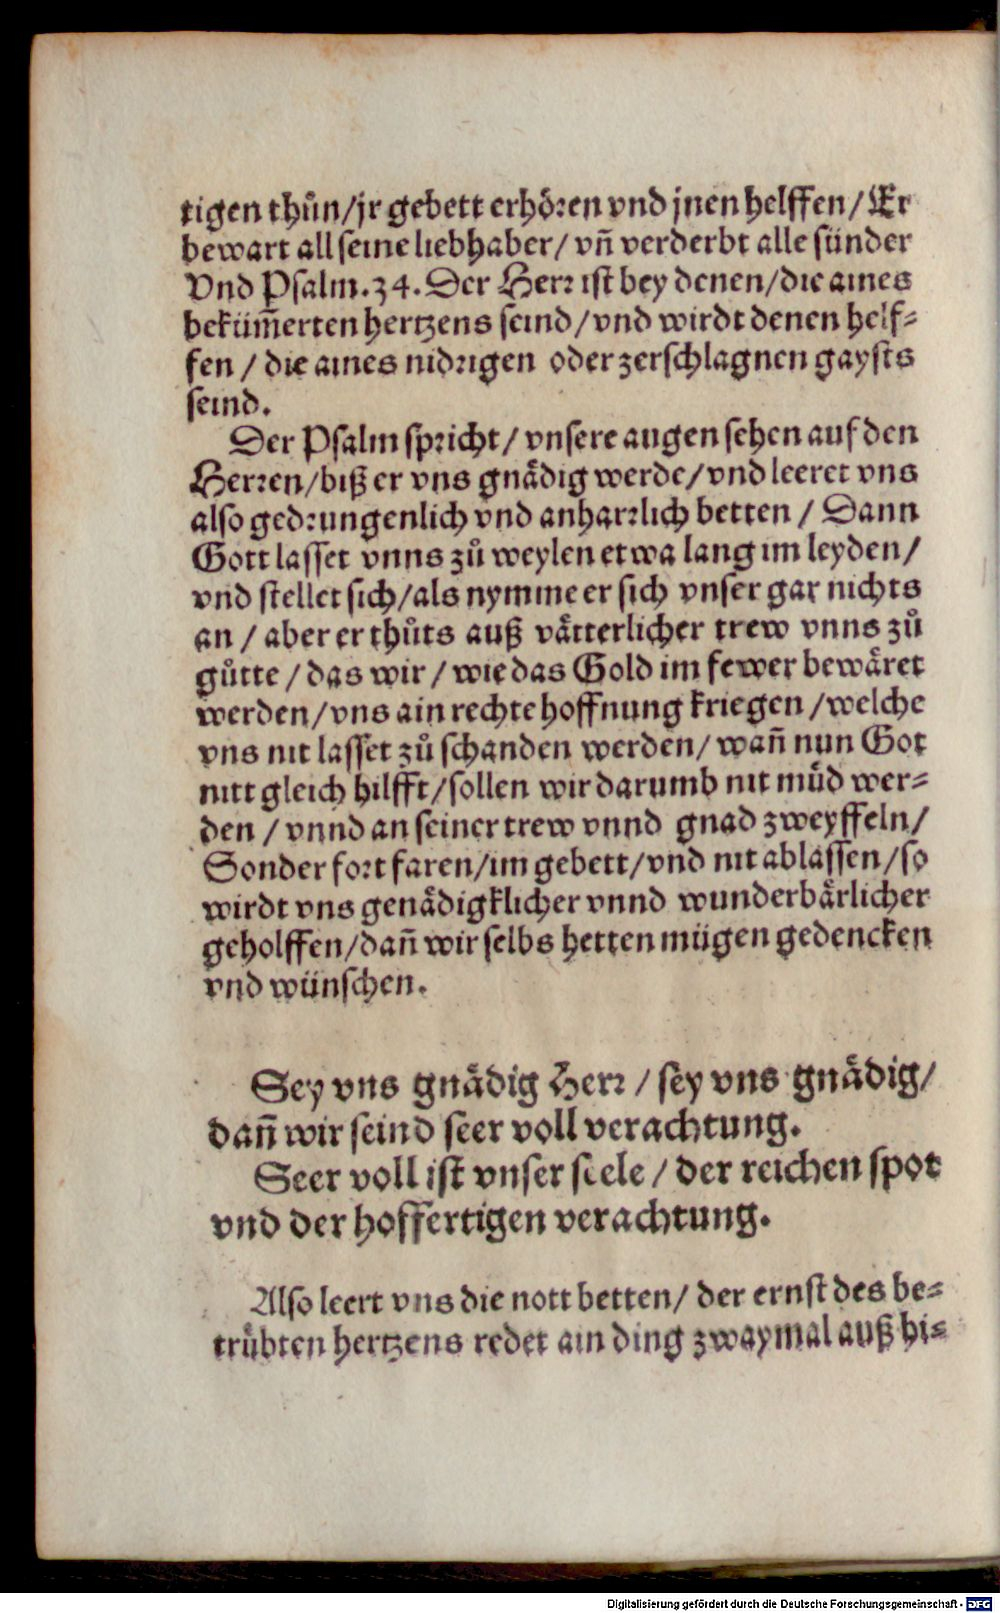 tigen thůn/jr gebett erhöꝛen vnd jnen helffen/ Er
bewart all seine liebhaber/ vñ verderbt alle sünder
Vnd Psalm.34. Der Herꝛ ist bey denen/die aines
bekümerten hertzens seind/vnd wirdt denen helf⸗
fen / die aines nidꝛigen oder zerschlagnen gaysts
seind.
Der Psalm spꝛicht/ vnsere augen sehen auf den
Herꝛen/biß er vns gnädig werde/vnd leeret vns
also gedꝛungenlich vnd anharꝛlich betten / Dann
Gott lasset vnns zů weylen etwa lang im leyden/
vnd stellet sich/als nymme er sich vnser gar nichts
an / aber er thůts auß vätterlicher trew vnns zů
gůtte / das wir / wie das Gold im fewer bewäret
werden/vns ain rechte hoffnung kriegen /welche
vns nit lasset zů schanden werden/ wañ nun Got
nitt gleich hilfft/sollen wir darumb nit müd wer⸗
den / vnnd an seiner trew vnnd gnad zweyffeln/
Sonder foꝛt faren/im gebett/vnd nit ablassen/so
wirdt vns genädigklicher vnnd wunderbärlicher
geholffen/dañ wir selbs hetten mügen gedencken
vnd wünschen.
Sey vns gnädig Herꝛ / sey vns gnädig/
dañ wir seind seer voll verachtung.
Seer voll ist vnser seele / der reichen spot
vnd der hoffertigen verachtung.
Also leert vns die nott betten/ der ernst des be⸗
trübten hertzens redet ain ding zwaymal auß hi⸗
Digitalisierung gefördert durch die Deutsche Forschungsgemeinschaft - DFG